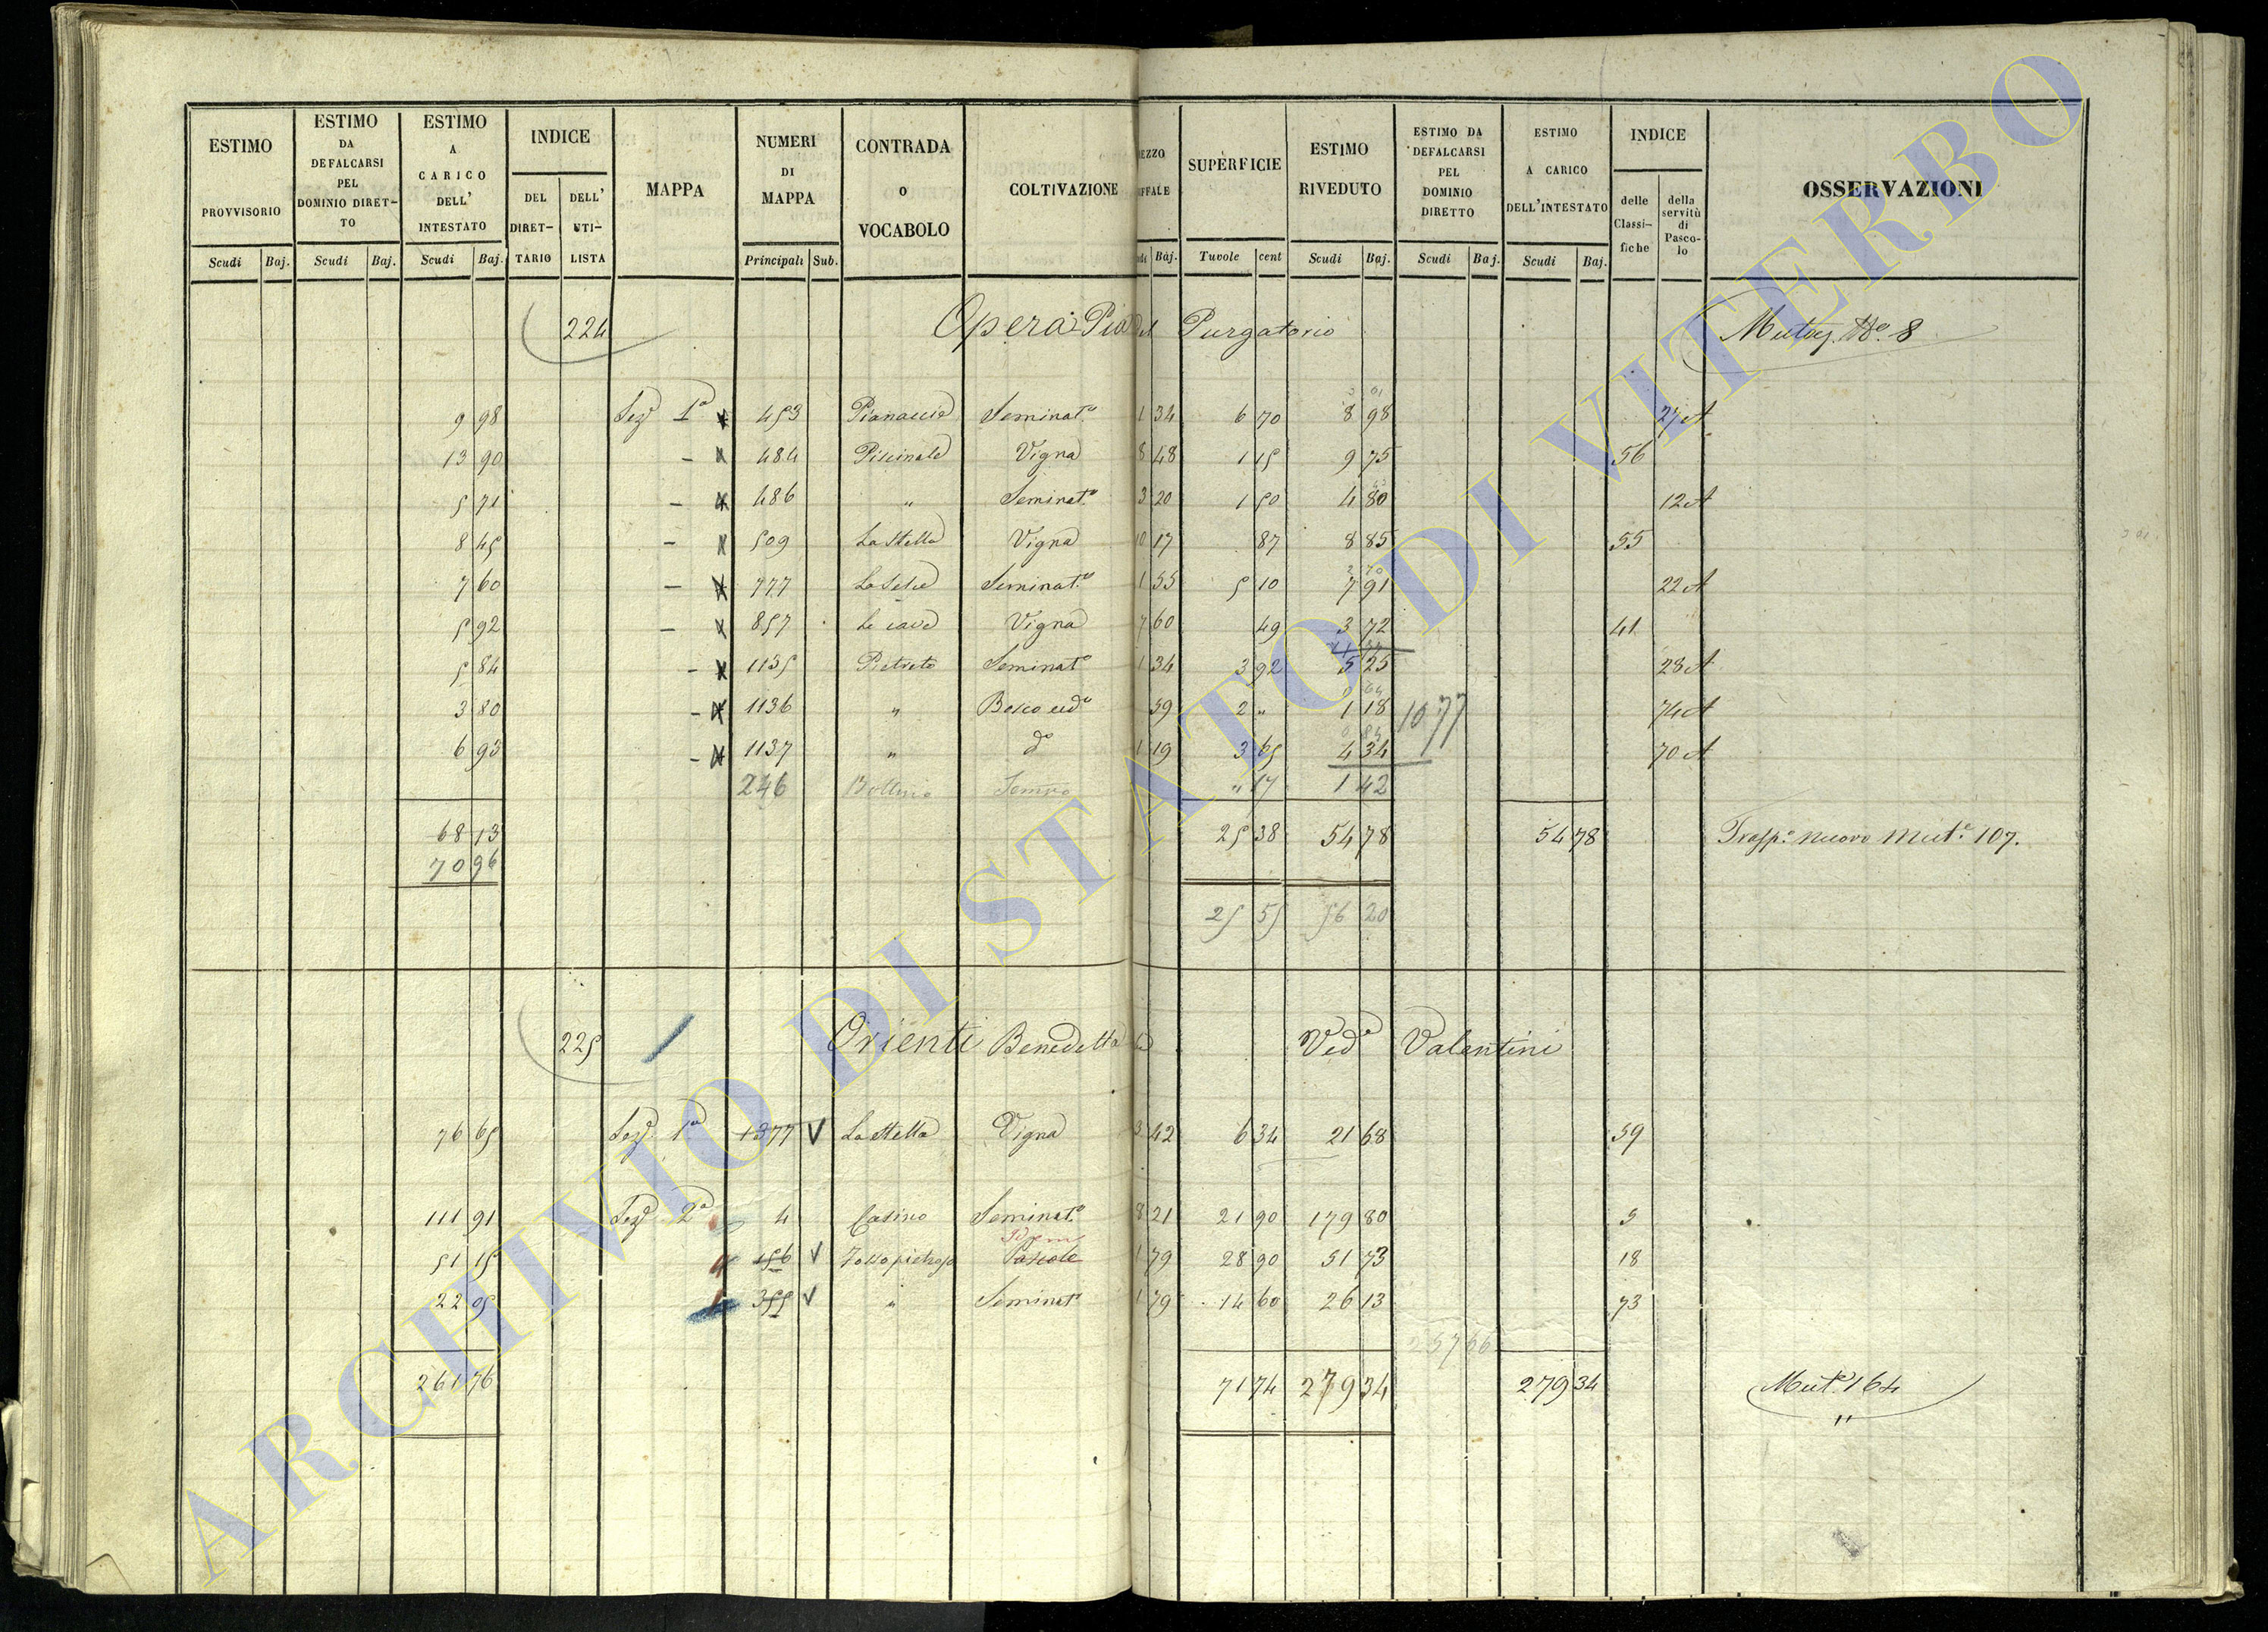 ESTIMO PROVVISORIO
Scudi Baj.
ESTIMO DA DEFALCARSI PEL DOMINIO DIRETTO
Scudi Baj.
ESTIMO A CARICO DELL' INTESTATO
Scudi Baj.
INDICE
DEL DIRETTARIO
DELL' UTILISTA
MAPPA
NUMERI DI MAPPA
Principali Sub.
CONTRADA O VOCABOLO
COLTIVAZIONE
EZZO
IFFALE
Baj.
SUPERFICIE
Tuvole cent
ESTIMO RIVEDUTO
Scudi Baj.
ESTIMO DA DEFALCARSI PEL DOMINIO DIRETTO
Scudi Baj.
ESTIMO A CARICO DELL'INTESTATO
Scudi Baj.
INDICE
delle Classifiche
della servitù di Pascolo
OSSERVAZIONI
224 Opera Pia del Purgatorio No. 8
9 98 Sezе 1a 453 Seminato 1 34 6 70 8 98 27 A
13 90 - 484 Piscinale Vigna 8 48 1 15 9 75 56
5 71 - 486 " Seminato 3 20 1 50 4 80 12 A
8 45 - 509 La Stella Vigna 10 17 87 8 85 55
7 60 - 777 Seminato 1 55 5 10 7 91 22 A
5 92 - 857 Le cave Vigna 7 60 49 3 72 41
5 84 - 1135 Pietreto Seminato 1 34 3 92 5 25 28 A
3 80 - 1136 " Bosco 59 2 " 1 18 74 A
1077
6 93 - 1137 " do 1 19 3 65 4 34 70 A
246 " 17 1 42
68 13 25 38 54 78 54 78 nuovo Mut. 107.
70 96
25 55 56 20
225 Orienti Benedetta Veda Valentini
76 65 1a 1377 V La Stella Vigna 3 42 6 34 21 68 59
111 91 2a 4 Casino Seminato 8 21 21 90 179 80 5
Idem
51 15 156 V Pascolo 1 79 28 90 51 73 18
22 05 355 V " Seminato 1 79 14 60 26 13 73
257 66
261 76 71 74 279 34 279 34 Mut. 164
"
ARCHIVIO DI STATO DI VITERBO